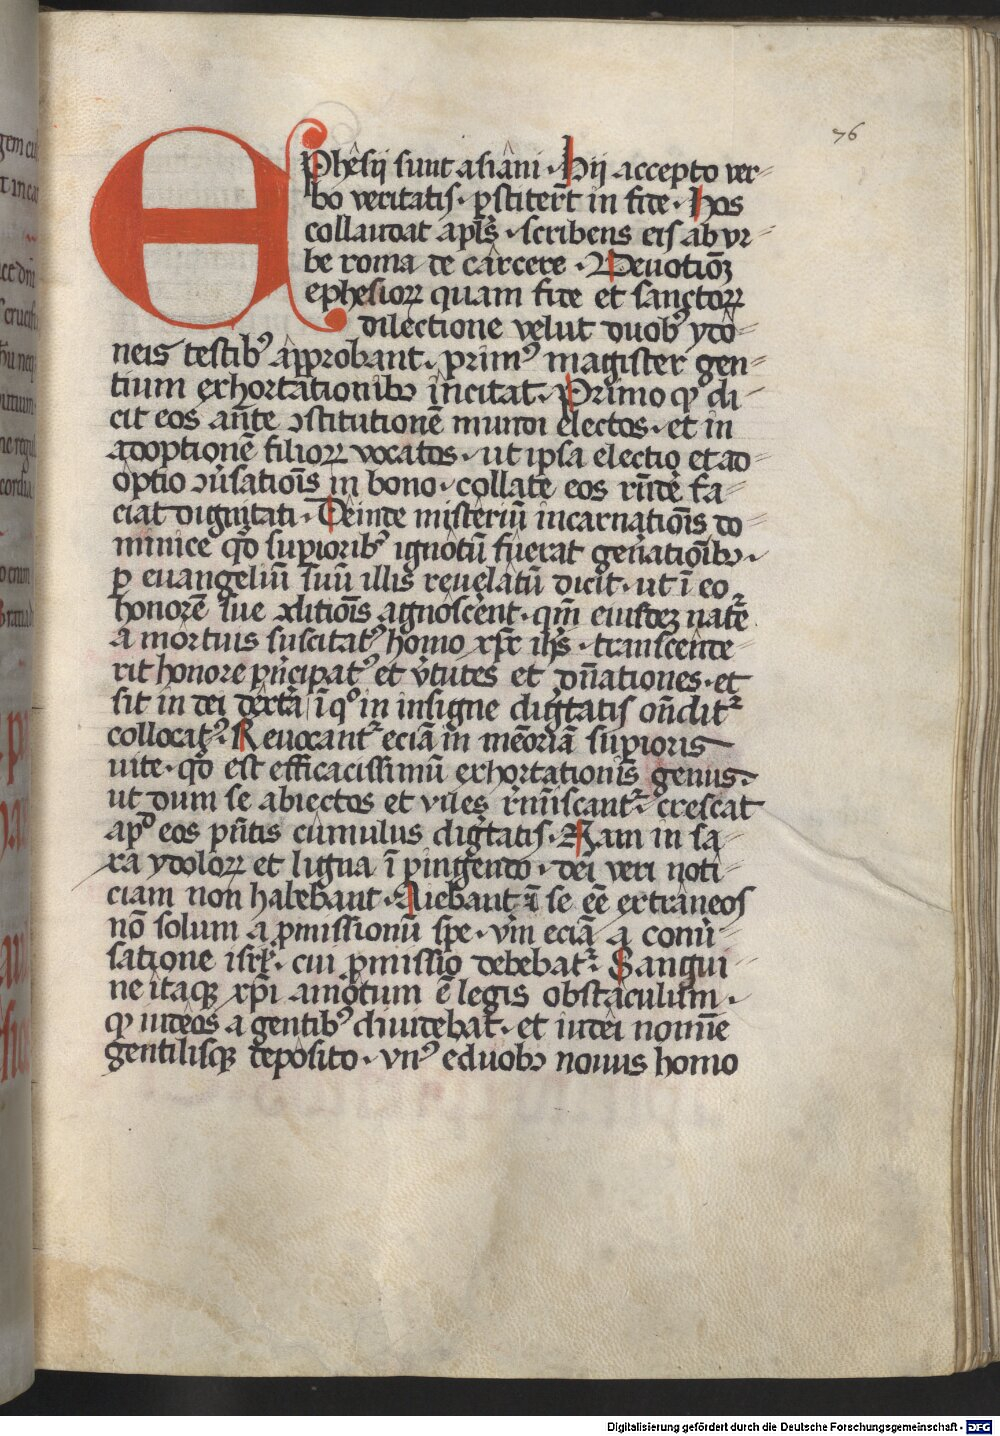 76
EPhesij sunt asiani · Hij accepto ver-
bo veritatis · pstiterut in fide · Hos
collaudat apls · scribens eis ab vr-
be roma de carcere · Deuotioēz
ephesiorꝝ quam fide et sanctorꝝ
dilectione velut duobꝰ ydo-
neis testibꝰ approbant · primꝰ magister gen-
tium exhortationibꝫ incitat · Primo qꝫ di-
cit eos ante ꝯstitutionē mundi electos · et in
adoptionē filiorꝝ vocatos · ut ipsa electio et ad-
optio ꝯūsationīs in bono · collate eos rn̄dē fa-
ciat dignitati · Deinde misteriū incarnationīs do-
minice qđ supioribꝰ ignotū fuerat geūationibꝫ ·
ꝑ euangeliū suū illis reuelatū dicit · ut ī eo
honorē sue ꝯditionīs agnoscent · qm̄ eiusdeꝫ nature
a mortuis suscitatꝰ homo xp̄c ih̄s · transcende-
rit honore pncipatꝰ et v̄tutes et dn̄ationes · et
sit in dei dextā ī qͦ in insigne digtatis on̄ditꝛ
collocatꝰ · Reuocantꝛ eciā in memoriā supioris
uite · qđ est efficacissimū exhortationis genus ·
ut dum se abiectos et viles rmīscantꝛ · crescat
apđ eos pn̄tis cumulus digtatis · Nam in sa-
xa ydolorꝝ et ligna ī pingendo · dei veri noti-
ciam non habebant · Aiebant ī se eē extraneos
nō solum a ꝓmissionū spe · vm̄ eciā a conū-
satione isrl̄ · cui ꝓmissio debebatꝛ · Sangui-
ne itaqꝫ xp̄i amotum ē legis obstaculum ·
qꝫ iudeos a gentibꝰ diuidebat · et iudei nomīe
gentilisqꝫ deposito · vnꝰ e duobꝫ nouus homo
Digitalisierung gefördert durch die Deutsche Forschungsgemeinschaft - DFG